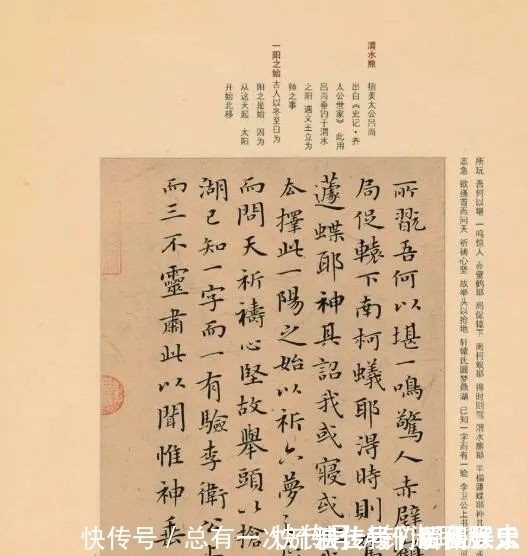 渭水熊 指姜太公吕尚
出自《史记·齐
太公世家》此用
吕尚垂钓于渭水
之阳 遇文王立为
帅之事
一阳之始 古人以冬至日为
阳之是始 因为
从这天起 太阳
开始北移
所玩 吾何以堪 一鸣惊人 赤壁鹤耶 局促辕下 南柯蚁耶 得时则驾 渭水熊耶 半榻蘧蝶耶 神
志急 欲搔首而问天 祈祷心坚 故举头以抢地 轩辕氏圆梦鼎湖 已知一字而有一验 李卫公上书
所翫吾何以堪一鳴驚人赤壁
局促轅下南柯蟻耶得時則
蘧蝶耶神其詔我或寢或
擇此一陽之始以祈六夢
而問天祈禱心堅故舉頭以搶
湖已知一字而一有驗李衛公
而三不靈肅此以聞惟神垂
快传号／总有一次